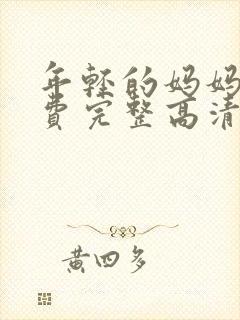 年轻的妈妈
费完整高清
黄四多